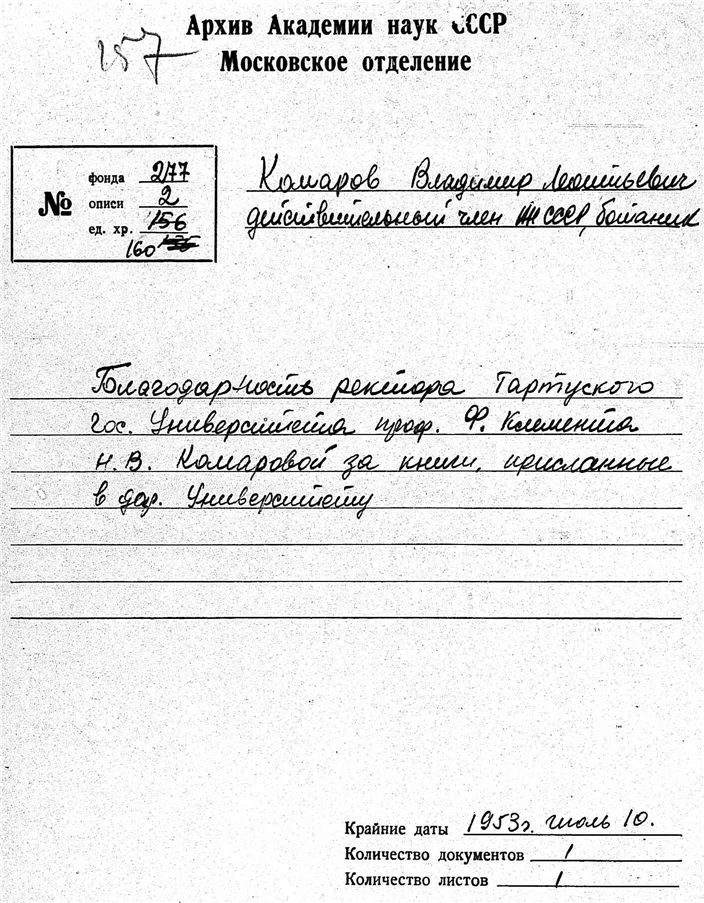 157
Архив Академии наук СССР
Московское отделение
№
фонда 277
описи 2
ед. хр. 156
160
Комаров Владимир Леонтьевич
действительный член АН СССР, ботаник
Благодарность ректора Тартуского
Гос. Университета проф. Ф. Клемента
Н.В. Комаровой за книги, присланные
в дар. Университету
Крайние даты 1953г. июль 10.
Количество документов 1
Количество листов 1